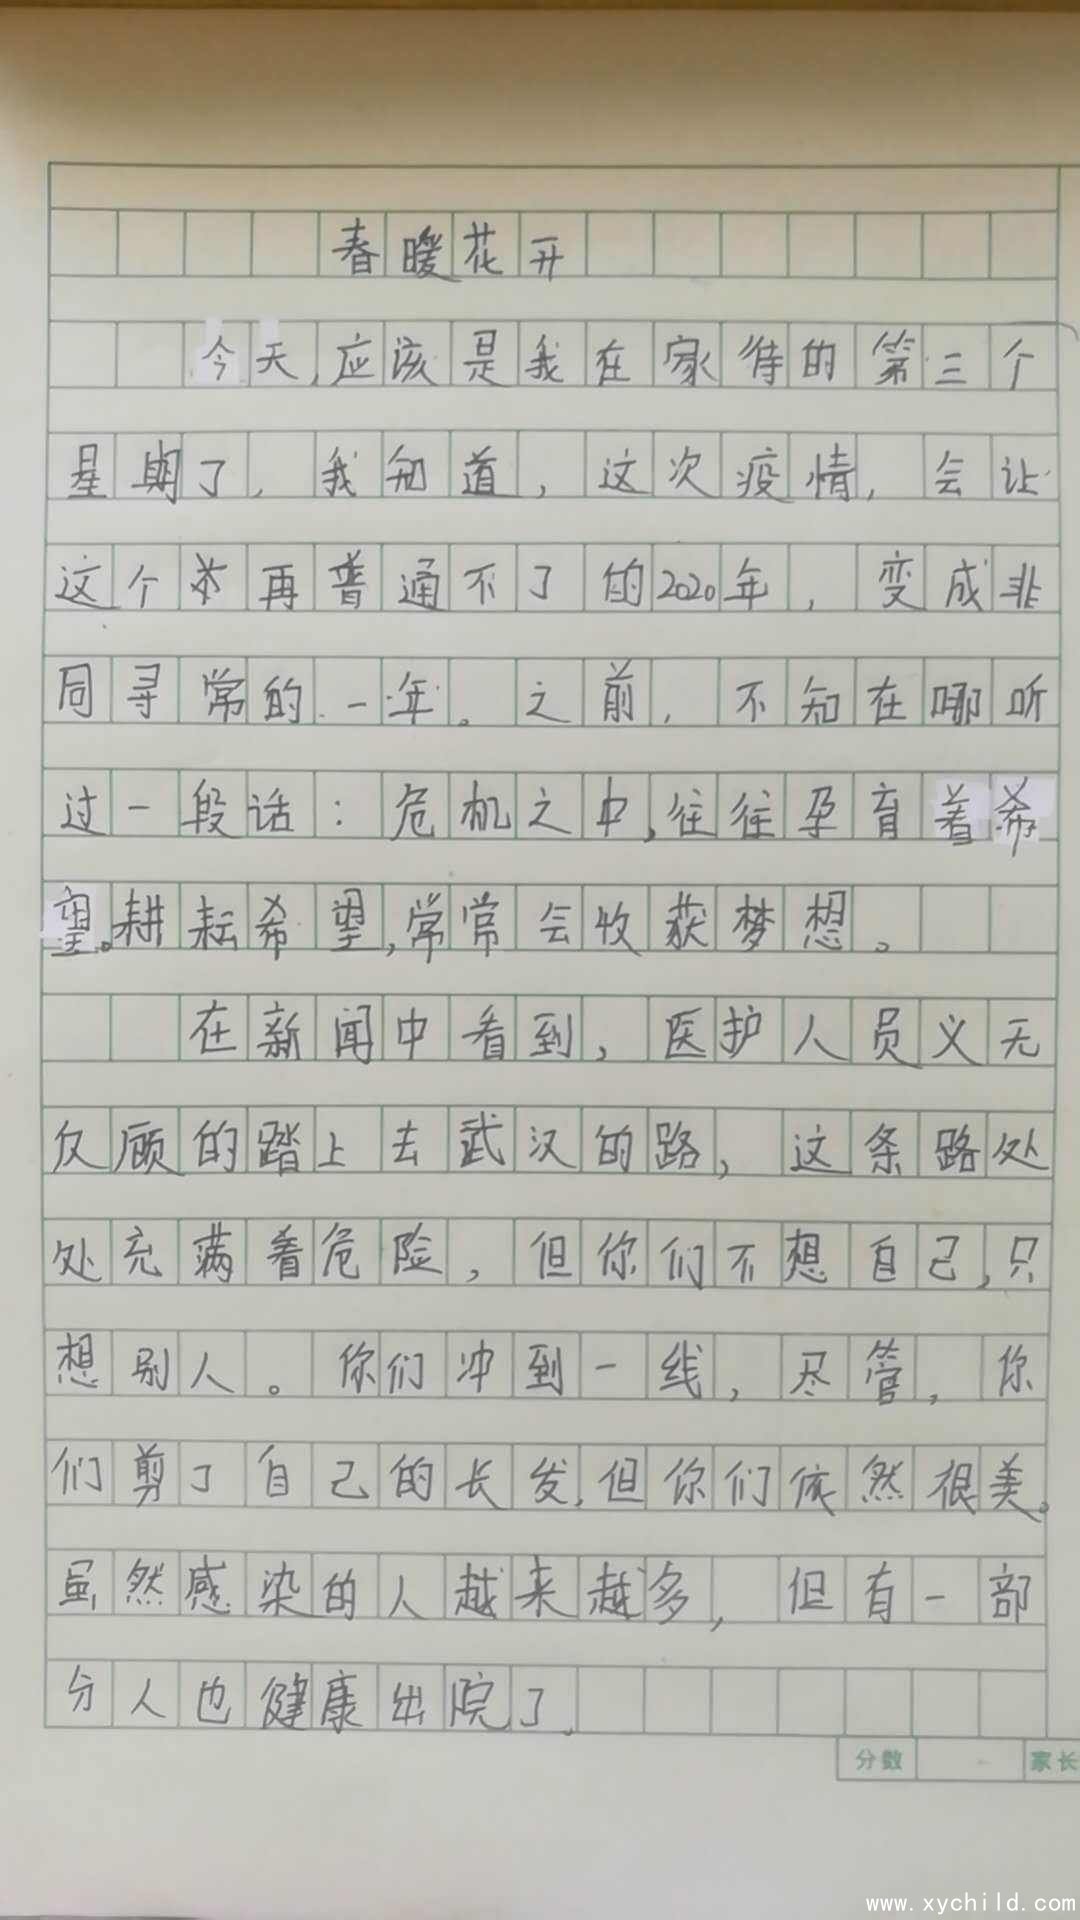 春暖花开
今天,应该是我在家待的第三个
星期了,我知道,这次疫情,会让
这个本再普通不了的2020年,变成非
同寻常的一年。之前,不知在哪听
过一段话:危机之中,往往孕育着希
望。耕耘希望,常常会收获梦想。
在新闻中看到,医护人员义无
反顾的踏上去武汉的路,这条路处
处充满着危险,但你们不想自己,只
想别人。你们冲到一线,尽管,你
们剪了自己的长发,但你们依然很美。
虽然感染的人越来越多,但有一部
分人也健康出院了.
分数 家长
www.xychild.com